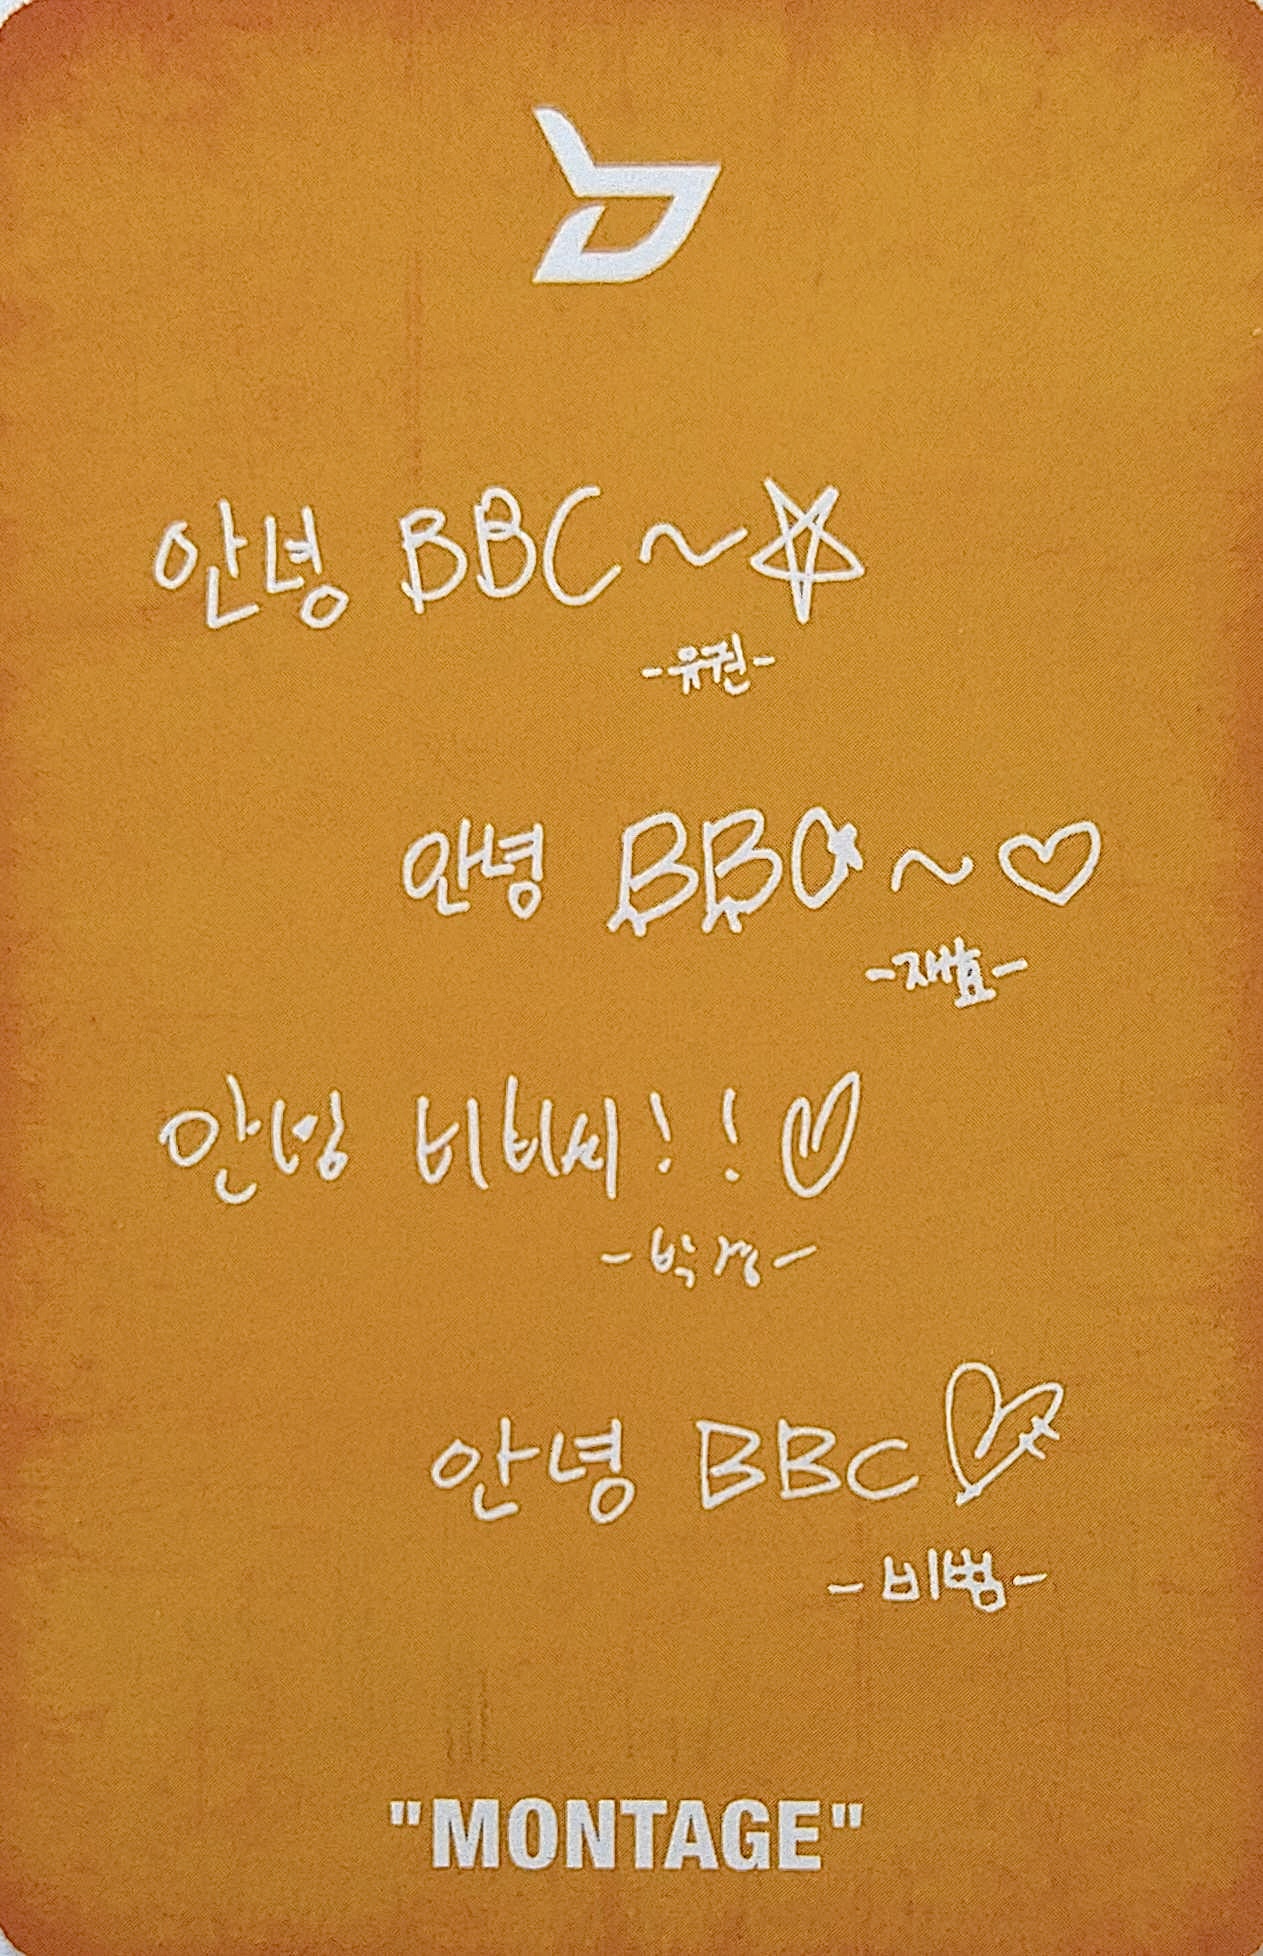 안녕 BBC~☆
-유권-
안녕 BBC~♡
-재효-
안녕 비비씨!!♡
-박경-
안녕 BBC♡
-비범-
"MONTAGE"